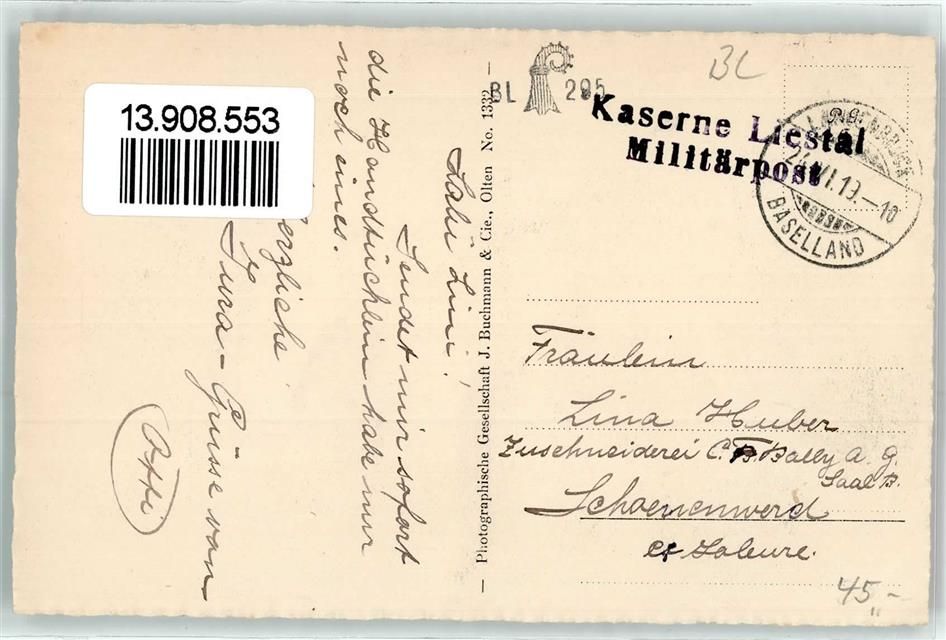 13.908.553
BL 295
BL
Kaserne Liestal
Militärpost
LANGENBRUCK
VI.19.–10
BASELLAND
Salü Lini!
Sendet mir sofort
die Handtüchlein habe nur
noch eines.
Herzliche
Jura-Grüsse von
– Photographische Gesellschaft J. Buchmann & Cie., Olten No. 1332 –
Fräulein
Lina Huber
Zuschneiderei C. F. Bally A. G.
Saal B.
Schoenenwerd
Ct. Soleure.
45.-